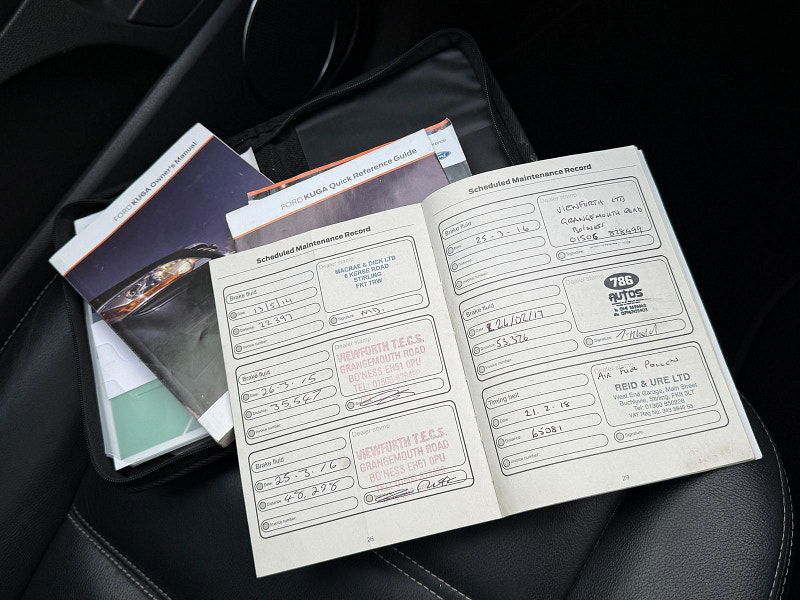 FORD KUGA Owner's Manual
FORD KUGA Quick Reference Guide
Scheduled Maintenance Record
Brake fluid
Date 13/5/14
Distance 22,397
Invoice number
Dealer stamp
MACRAE & DICK LTD
6 KERSE ROAD
STIRLING
FK7 7RW
Signature
Brake fluid
Date 26-3-15
Distance 35,567
Invoice number
Dealer stamp
VIEWFORTH T.E.C.S.
GRANGEMOUTH ROAD
BO'NESS EH51 0PU
Signature
Brake fluid
Date 25-3-16
Distance 48,298
Invoice number
Dealer stamp
VIEWFORTH T.E.C.S.
GRANGEMOUTH ROAD
BO'NESS EH51 0PU
Signature
28
Scheduled Maintenance Record
Brake fluid
Date 25-3-16
Distance
Invoice number
Dealer stamp
VIEWFORTH LTD
GRANGEMOUTH ROAD
BO'NESS
01506 828499
Signature
Brake fluid
Date 24/02/17
Distance 53,376
Invoice number
Dealer stamp
786
AUTOS
Signature
Timing belt
Date 21-2-18
Distance 65081
Invoice number
Dealer stamp
AIR FILTER POLLEN
REID & URE LTD
West End Garage, Main Street
Buchlyvie, Stirling, FK8 3LT
Tel: 01360 850228
Signature
29